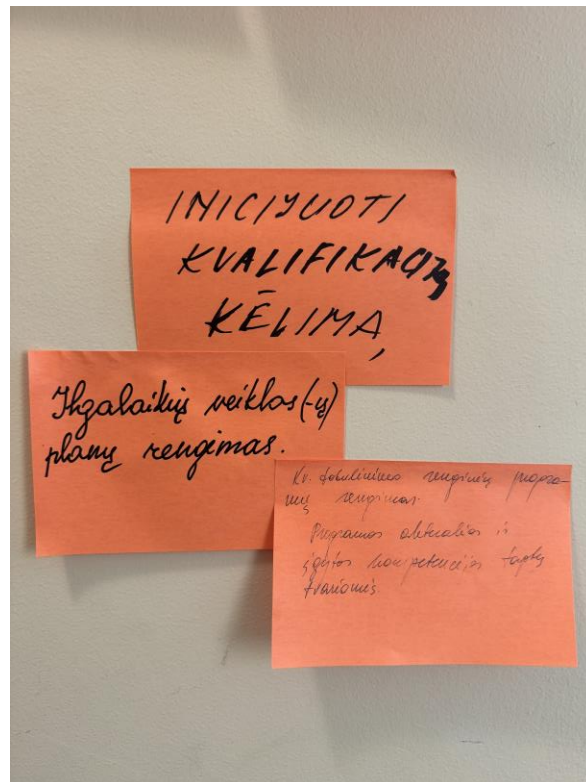 INICIJUOTI
KVALIFIKACIJŲ
KĖLIMĄ
Ilgalaikių veiklos(-ų)
planų rengimas.
Kv. tobulinimo renginių progra-
mų rengimas.
Programos aktualios ir
įgytos kompetencijos taptų
tvariomis.